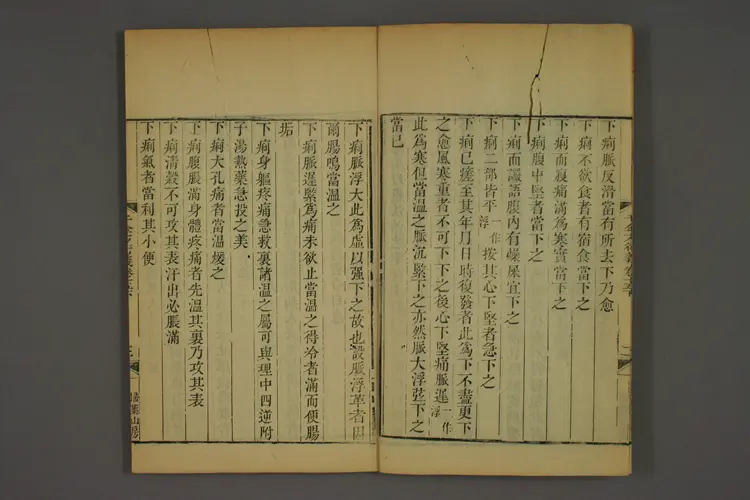 下痢脈反滑當有所去下乃愈
下痢不欲食者有宿食當下之
下痢而腹痛滿為寒實當下之
下痢腹中堅者當下之
下痢而讝語腹內有燥屎宜下之
下痢三部皆平一作浮按其心下堅者急下之
下痢已瘥至其年月日時復發者此為下不盡更下
之愈風寒重者不可下下之後心下堅痛脈遲一作浮
此為寒但當溫之脈沉緊下之亦然脈大浮弦下之
當已
下痢脈浮大此為虛以强下之故也設脈浮革者因
爾腸鳴當溫之
下痢脈遲緊為痛未欲止當溫之得冷者滿而便腸
垢
下痢身軀疼痛急救裏諸溫之屬可與理中四逆附
子湯熱藥急投之美
下痢大孔痛者當溫煖之
下痢腹脹滿身體疼痛者先溫其裏乃攻其表
下痢清穀不可攻其表汗出必脹滿
下痢氣者當利其小便